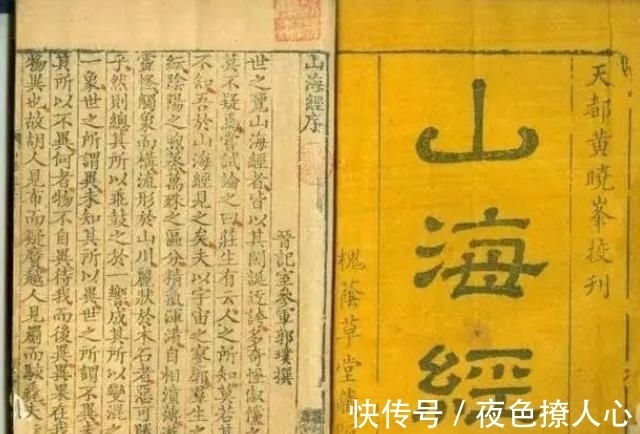 天都黄曉峯挍刊
山海經
槐蔭草堂藏
山海經序
晉記室參軍郭璞撰
世之覽山海經者皆以其閎誕迂誇多奇怪俶儻
莫不疑焉嘗試論之曰莊生有云人之所知莫若其
不知吾於山海經見之矣夫以宇宙之寥廓群生之
紜陰陽之煦蒸萬殊之區分精氣渾淆自相濆薄
靈怪觸象而構流形於山川麗狀於木石者惡可勝
乎然則總其所以乖鼓之於一響成其所以變混之
一象世之所謂異未知其所以異世之所謂不異
其所以不異何者物不自異待我而後異異果在我
物異也故胡人見布而疑黂越人見罽而駭毳夫
快传号 / 夜色撩人心